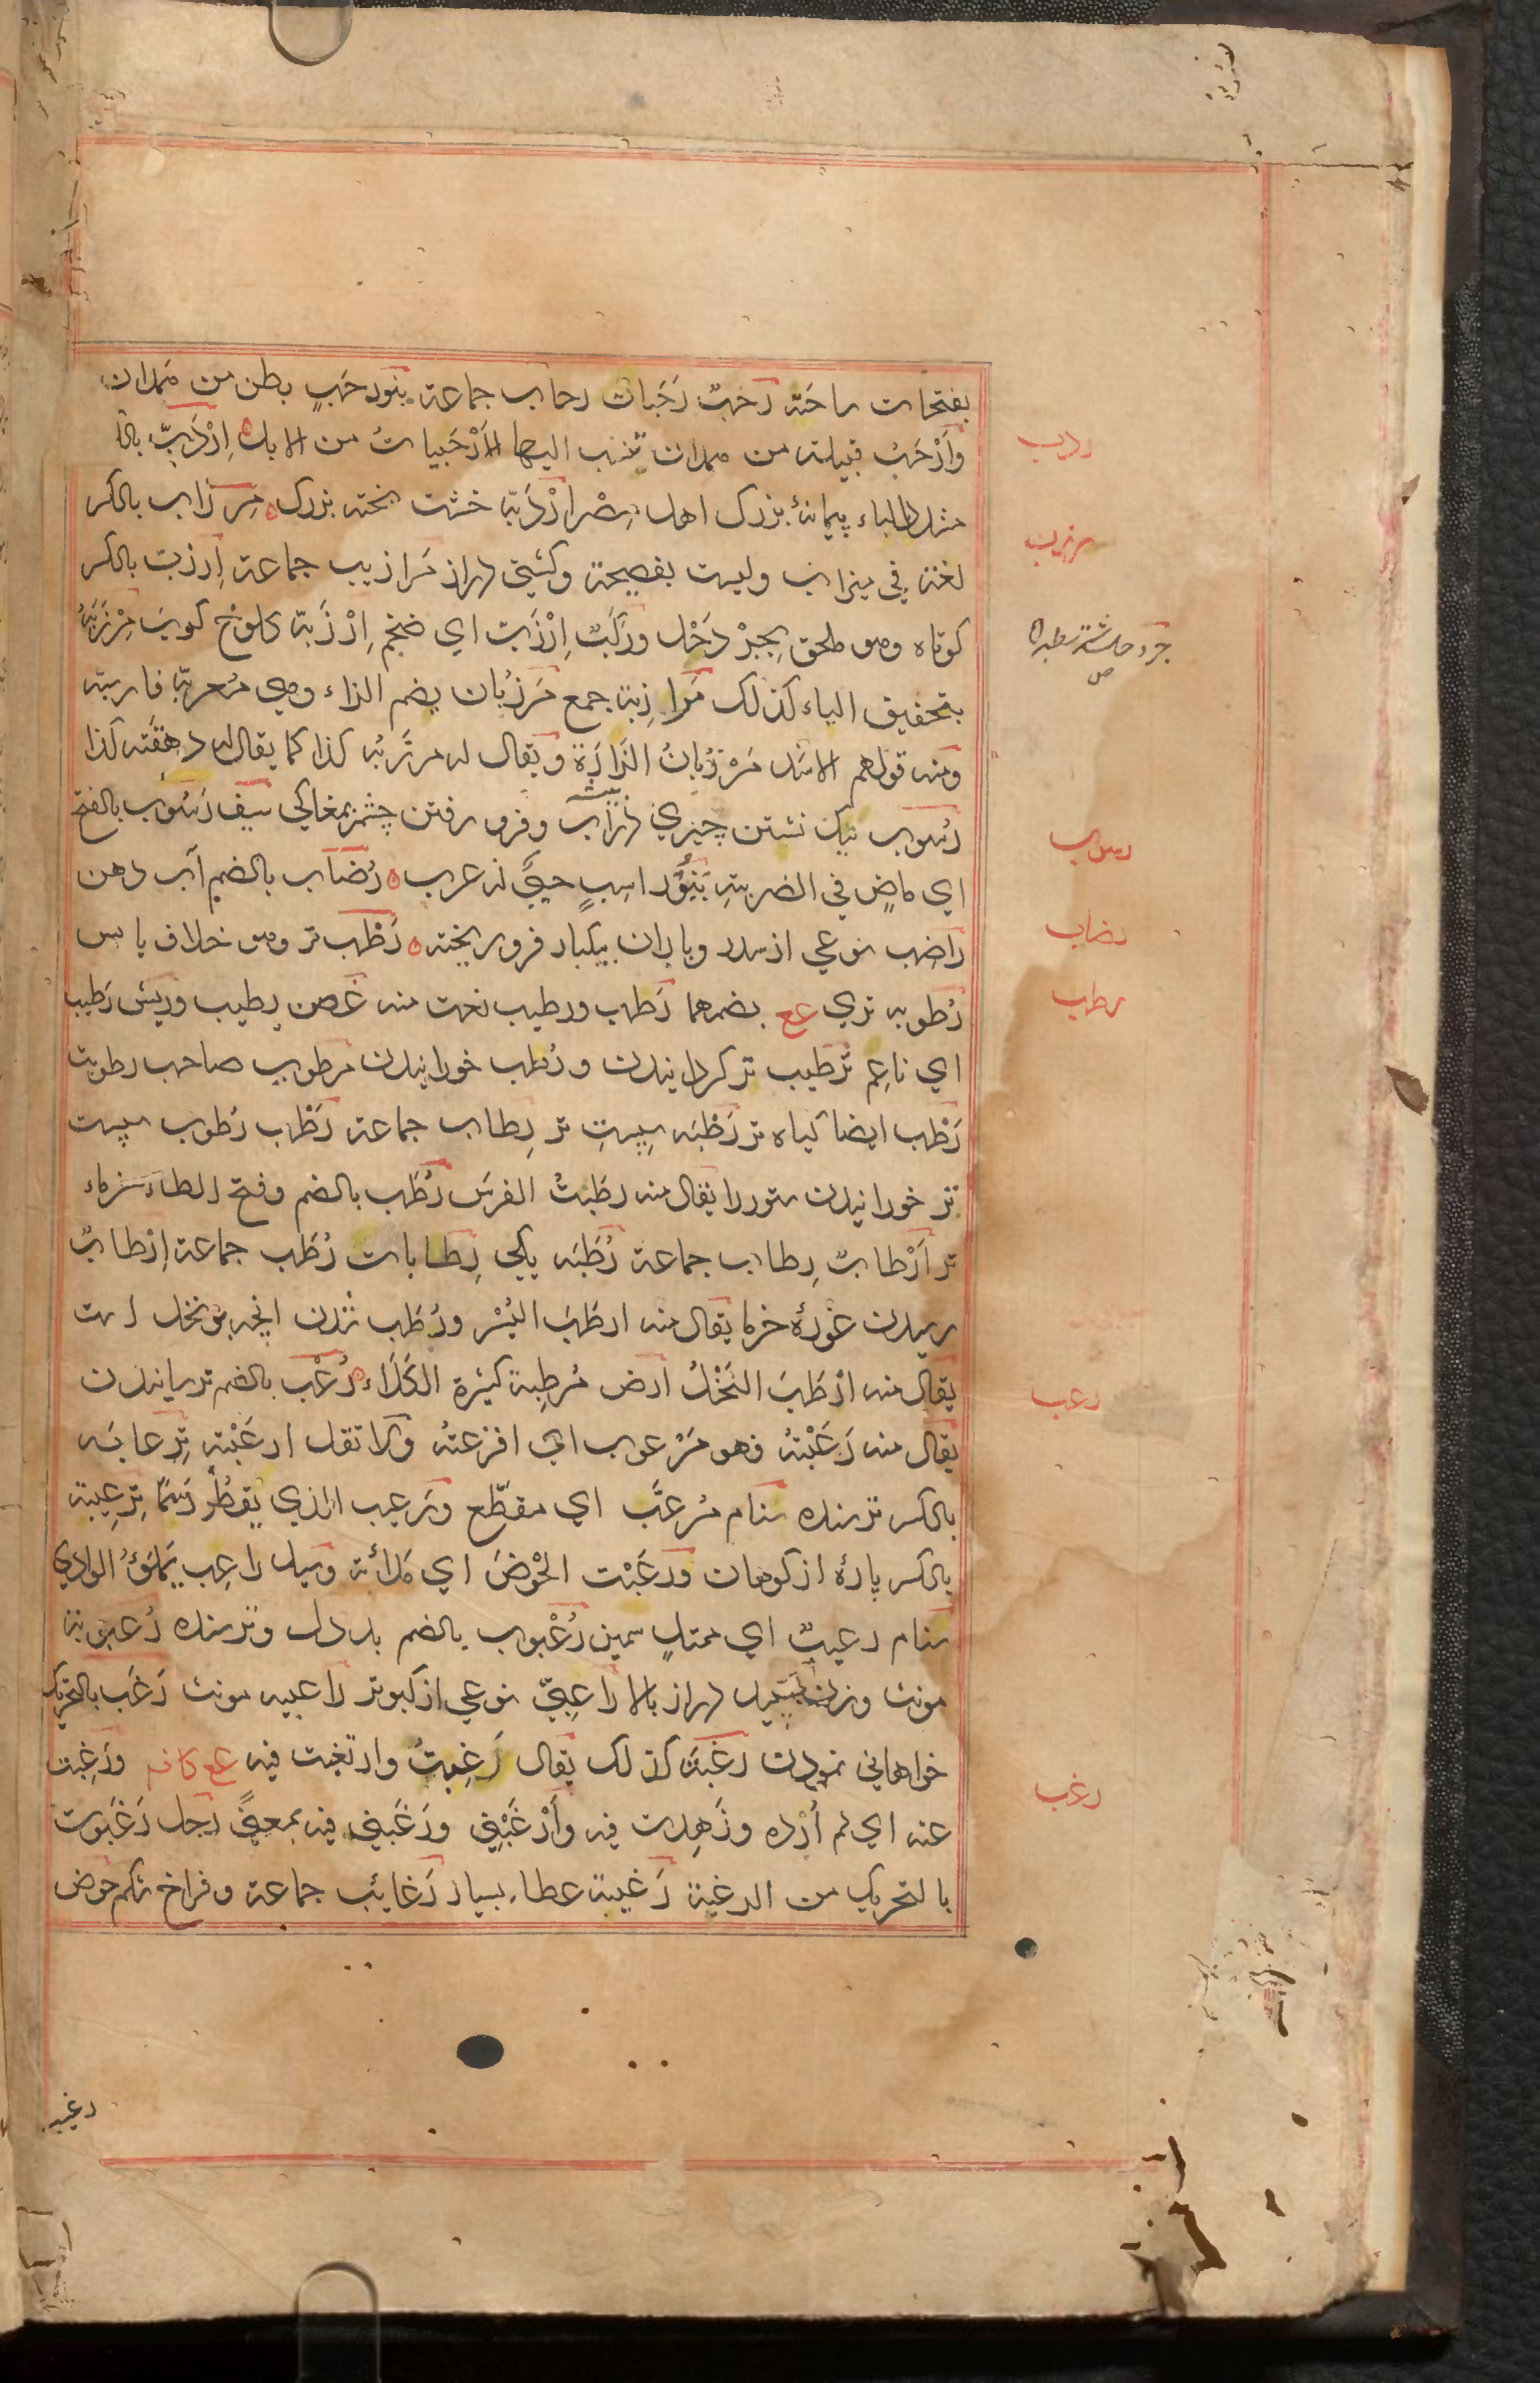 بفتحات ساحته رَحَبٌ رَحَباتٌ رحاب جماعة بنورحَبٍ بطن من همدان
وأَرْحَبُ قبيلة من همدان تنسب اليها الأَرْحَبياتُ من الابل اِرْدَبّ بالكسر
مشدد الباء پيمانهٔ بزرک اهل مِصْر اِرْدَبّه خشت پخته بزرک مِرزاب بالكسر
لغة في ميزاب وليست بفصيحة وكشتي دراز مَرازيب جماعة اِرزبّ بالكسر
كوتاه وهو ملحق بِجِرْدَحْل ورَكَبٌ اِرْزَبّ اي ضخم اِرْزَبّه كلوخ كوب مِرْزَبَه
بتخفيف الباء كذلك مَرازِبة جمع مَرزُبان بضم الزاء وهي مُعربّة فارسيّه
ومنه قولهم الاسَد مَرْزُبانُ الزَّارَة ويقال له مرزَبُه كذا كما يقال له دهقَنَه كذا
رُسوب بتک نشستن چيزي در آب وفرو رفتن چشم بمغاكي سيف رَسُوب بالفتح
اي ماضٍ في الضريبةِ بَنُو راسِبٍ حيٌّ از عرب رُضاب بالضم آب دهن
راضِب نوعي از سدر وباران بيكبار فرو ريخته رَطْب تر وهو خلاف يابس
رُطوبه تري عع بضمهما رَطب ورطيب نعت منه غصن رطيب وريش رَطيب
اي ناعِم تَرطيب تر كردانيدن ورُطَب خورانيدن مرطوب صاحب رطوبت
رَطْب ايضا كياه تر رَطْبَه سِپِستِ تر رِطاب جماعة رَطْب رُطوب سپست
تر خورانيدن ستور را يقال منه رطَبتُ الفرسَ رُطَب بالضم وفتح الطاء خرماء
تر اَرْطابٌ رِطاب جماعة رُطَبَه يكي رِطابات رُطَب جماعة اِرْطابٌ
رسيدن غورهٔ خرما يقال منه ارطَبَ البُسْر ورُطَب شدن انچه بر نخل است
يقال منه ارْطَبَ النَخْلُ ارض مُرطِبة كثيرة الكَلَاء رُعْب بالضم ترسانيدن
يقال منه رَعَبْتهُ فهو مَرْعوب اي افزعتهُ ولا تقل ارعَبْته تِرعابَه
بالكسر ترسنده سنام مُرعَّب اي مقطّع ورَعيب الذي يَقطُر دَسَمًا تِرْعِيبة
بالكسر پارهٔ از كوهان ورَعَبْت الحَوْضَ اي مَلأته وسيل راعِب يَملَؤُ الوادي
سنام رعيبٌ اي ممتلٍ سمين رُعْبوب بالضم بددل وترسنده رُعبوبة
مونث وزن سپيد دراز بالا راعِبيّ نوعي از كبوتر راعبيه مونث رَغَب بالتحريک
خواهاني نمودن رغبَة كذلک يقال رَغِبتُ وارتغبت فيه عع كا فه ورَغِبت
عنه اي لم اُرِده وزَهِدت فيه وأَرْغَبْنِي ورَغَّبني فيه بمعنًى رجل رَغَبوت
بالتحريک من الرغبة رَغيبة عطاء بسيار رَغائِب جماعة وفراخ شكم حَوض
رغيب
ردب
مرزيب
رسوب
رضاب
رطب
رعب
رغب